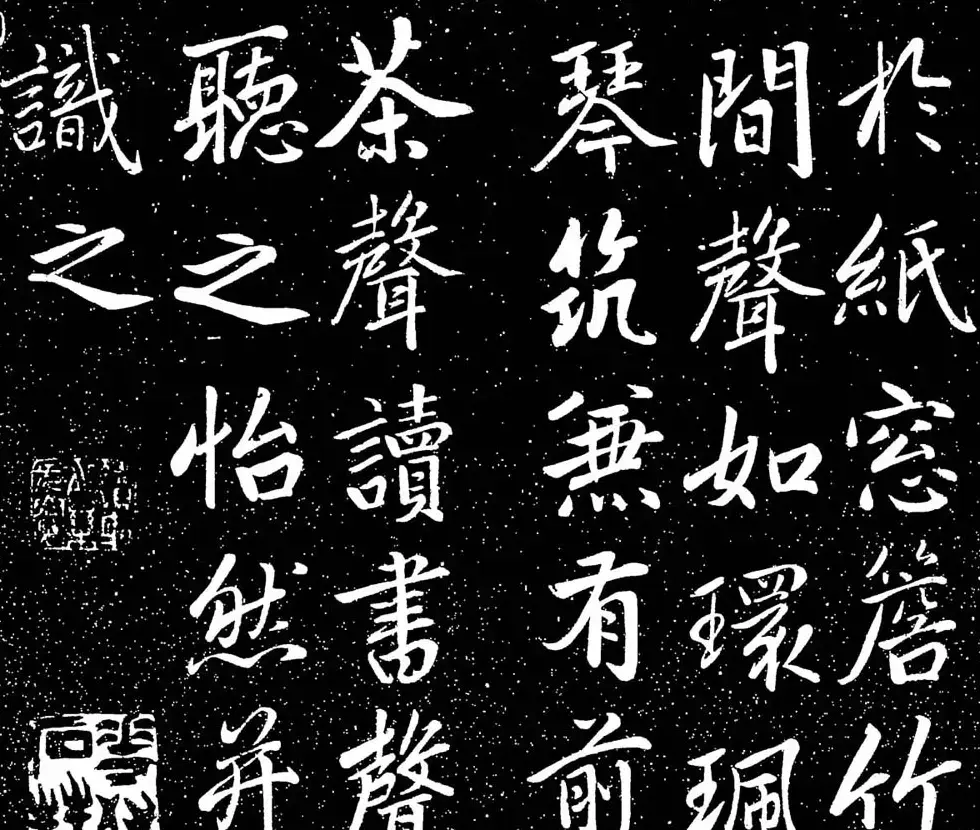 於紙窓簷竹
間聲如環珮
琴筑兼有前
茶聲讀書聲
聽之怡然并
識之